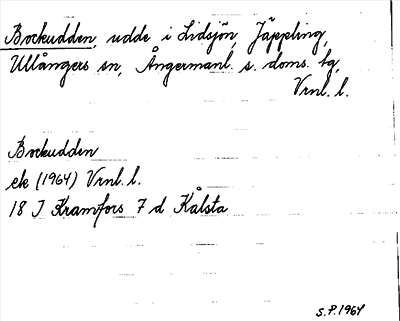 Bockudden, udde i Lidsjön, Jäppling,
Ullångers sn, Ångermanl. s. doms. tg,
Vrnl. l.
Bockudden
ek (1964) Vrnl. l.
18 I Kramfors 7 d Kålsta
S.P. 1964